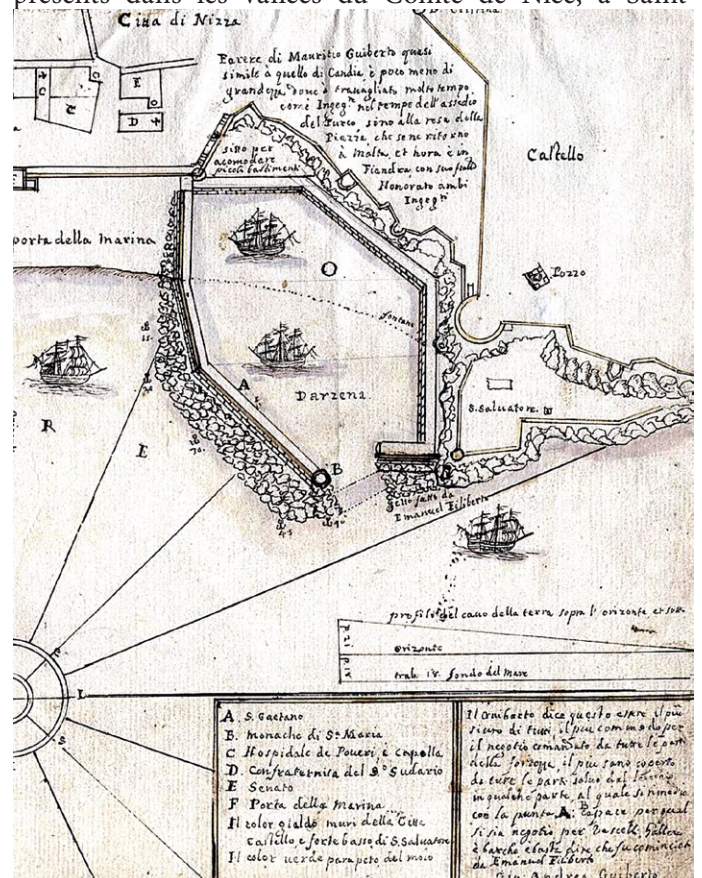 présents dans les vallées du Comté de Nice, à Saint
Citta di Nizza
Parere di Mauritio Guiberto quasi
simile à quello di Candia è poco meno di
grandezza dove è travagliato molto tempo
come Ingegn nel tempo dell'assedio
del Turco sino alla resa della
Piazza che se ne ritorno
à Malta, et hora è in
Fiandra con suo
Honorato ambi
Ingegri
C
E
D
sitto per
acomodare
picoli bastimenti
Castello
porta della marina
O
Pozzo
fontane
Darzena
A
S. Salvatore
R
E
B
fatto da
Emanuel Filiberto
profilo del cavo della terra sopra l'orizonte et
orizonte
fondo del mare
L
S
A S. Gaetano
B. monache di Sa Maria
C Hospidale de Poveri, è capella
D. Confraternita del So Sudario
E Senato
F Porta della marina
Il color gialdo muri della Citta
Castello, e forte basso di S. Salvatore
Il color verde parapeto del molo
Il Guiberto dice questo essere il più
sicuro di tutti, il piu commodo per
il negotio comandato da tutte le parti
della fortezza, il piu sano coperto
da tutte le parti salvo dal
in qualche parte al quale si rimedia
con la punta A. B capace per qual
si sia negotio per Vascelli, Galere
è barche è basta dire che fu cominciato
da Emanuel Filiberto
Gio: Andrea Guiberto